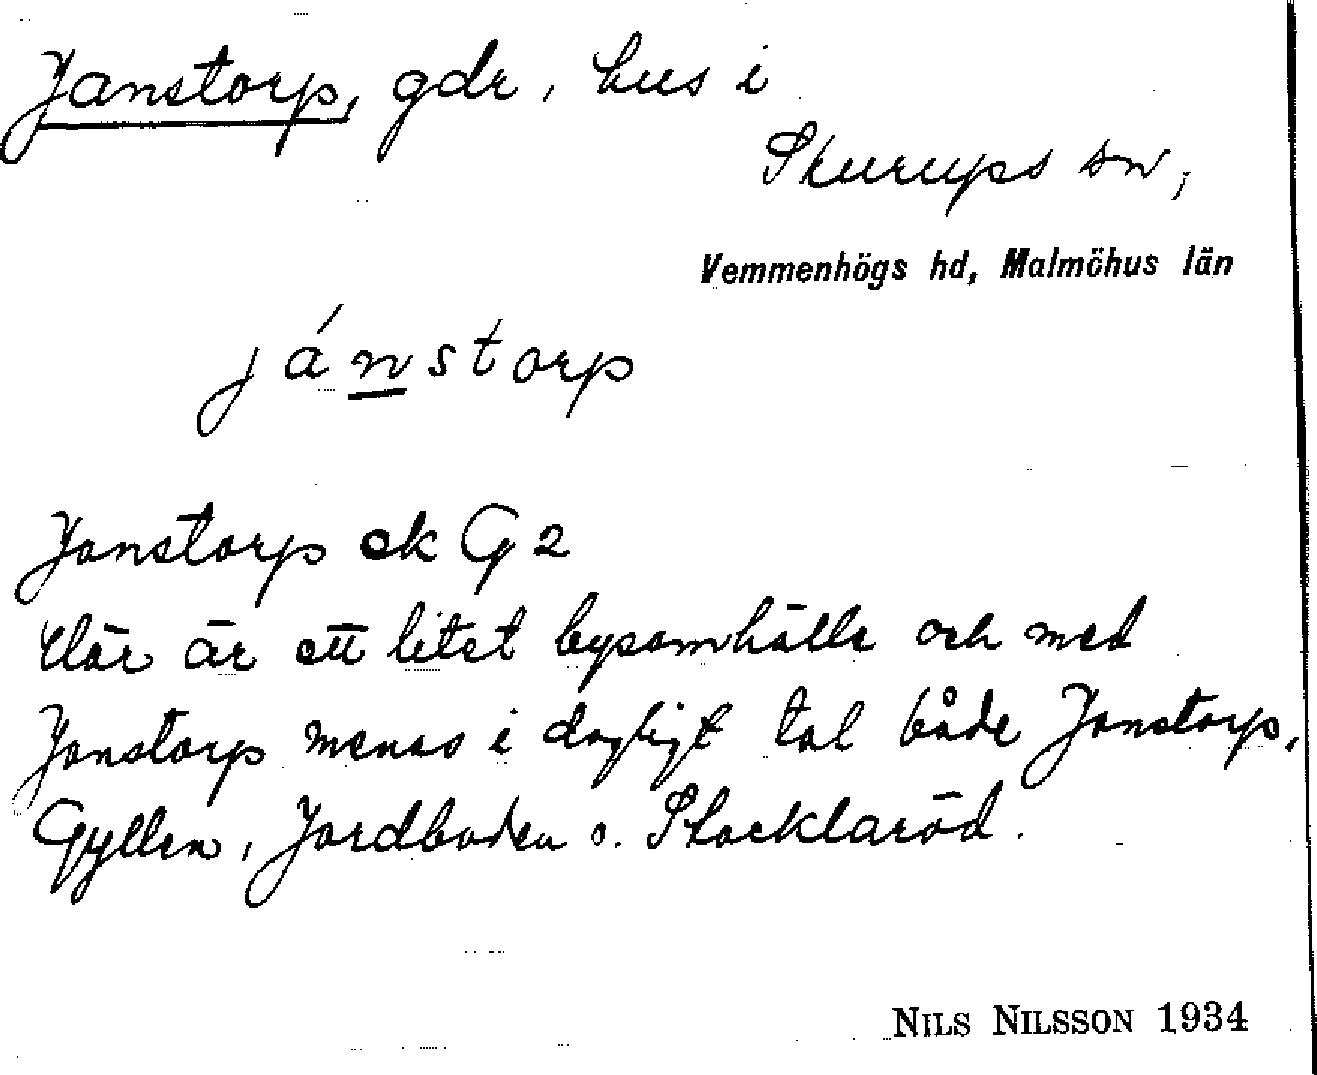 Janstorp, gdr, hus i
Skurups sn,
Vemmenhögs hd, Malmöhus län
jánstorp
Janstorp ek G 2
Där är ett litet bysamhälle och med
Janstorp menas i dagligt tal både Janstorp,
Gyllen, Jordboden o. Stocklaröd.
NILS NILSSON 1934